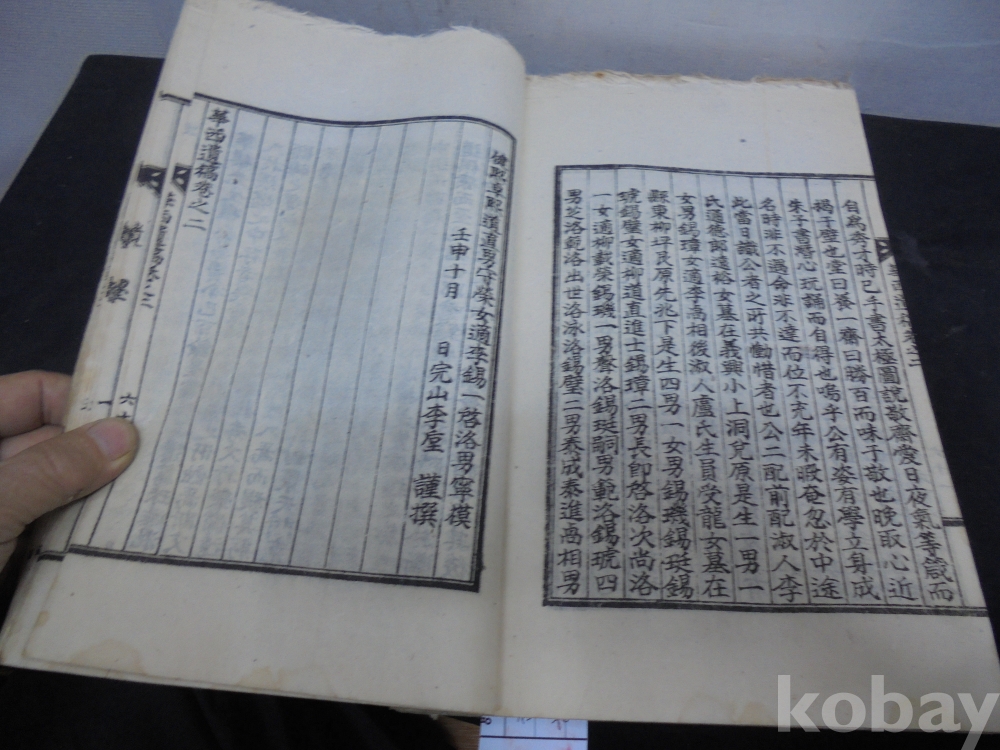 自爲秀才時已手書太極圖說敬齋愛日夜氣等箴而
揭于壁也堂曰養一齋曰勝百而味于敬也晚取心近
朱子書專心玩誦而自得也嗚乎公有姿有學立身成
名時非不遇命非不達而位不充年未暇奄忽於中途
此當日識公者之所共慟惜者也公二配前配淑人李
氏通德郎遠裕女墓在義興小上洞兌原是生一男一
女男錫瑋女適李高相後淑人盧氏生員受龍女墓在
縣東柳坪艮原先兆下是生四男一女男錫璣錫珽錫
琥錫璧女適柳道直進士錫瑋二男長卽啓洛次尚洛
一女適柳載榮錫璣一男磬洛錫珽嗣男範洛錫琥四
男芝洛範洛出世洛泳洛錫璧二男泰成泰進高相男
道直男 榮女適李錫一啓洛男寧模
壬申十月 日完山李 謹撰
華西遺稿卷之二
六十
kobay